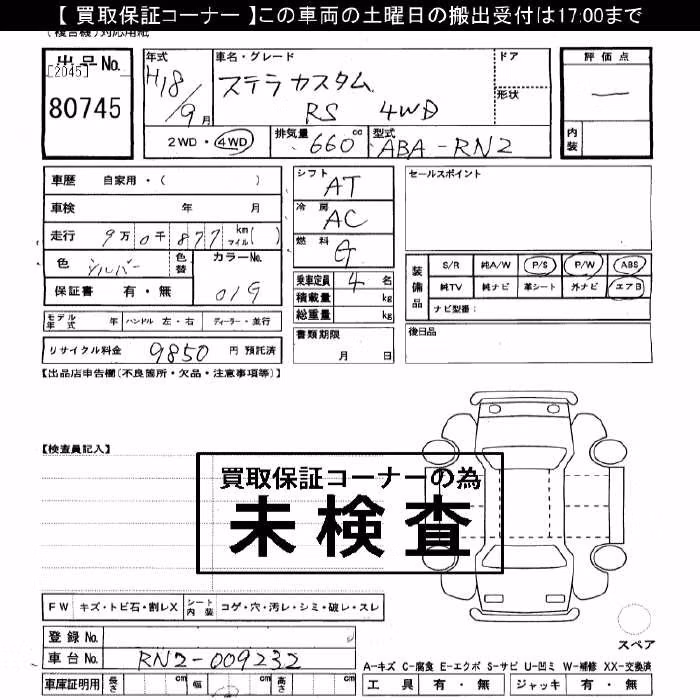 【 買取保証コーナー 】この車両の土曜日の搬出受付は17:00まで
(複合機)対応用紙
出品No.
[2045]
80745
年式
H18/9月
車名・グレード
ステラカスタム
RS 4WD
ドア
形状
評価点
内装
2WD・4WD
排気量
660cc
型式
ABA-RN2
車歴 自家用・( )
車検 年 月
走行 9万0千877 km マイル( )
色 シルバー 色替 カラーNo.
保証書 有・無 019
モデル年式 年 ハンドル 左・右 ディーラー・並行
リサイクル料金 9850 円 預託済
シフト
AT
冷房
AC
燃料
G
乗車定員 4 名
積載量 kg
総重量 kg
書類期限
月 日
セールスポイント
装備品
S/R 純A/W P/S P/W ABS
純TV 純ナビ 革シート 外ナビ エアB
ナビ型番:
後日品
【出品店申告欄(不良箇所・欠品・注意事項等)】
【検査員記入】
買取保証コーナーの為
未検査
FW キズ・トビ石・割レX シート内装 コゲ・穴・汚レ・シミ・破レ・スレ
登録No.
車台No. RN2-009232
車庫証明用 長さ cm 幅 cm 高さ cm
スペア
A-キズ C-腐食 E-エクボ S-サビ U-凹ミ W-補修 XX-交換済
工具 有・無 ジャッキ 有・無